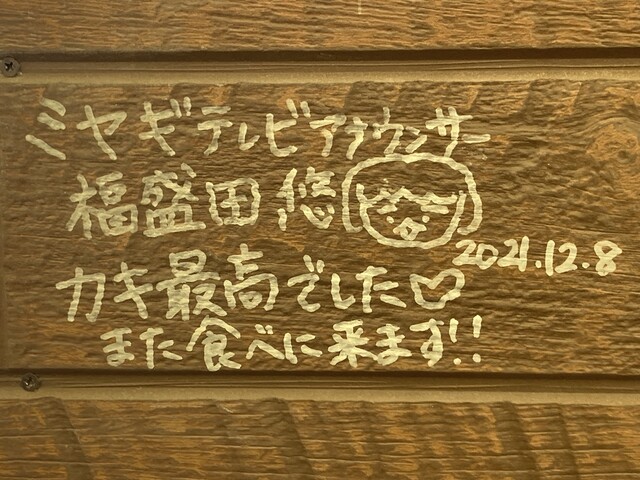 ミヤギテレビアナウンサー
福盛田悠
2021.12.8
カキ最高でした♡
また食べに来ます!!